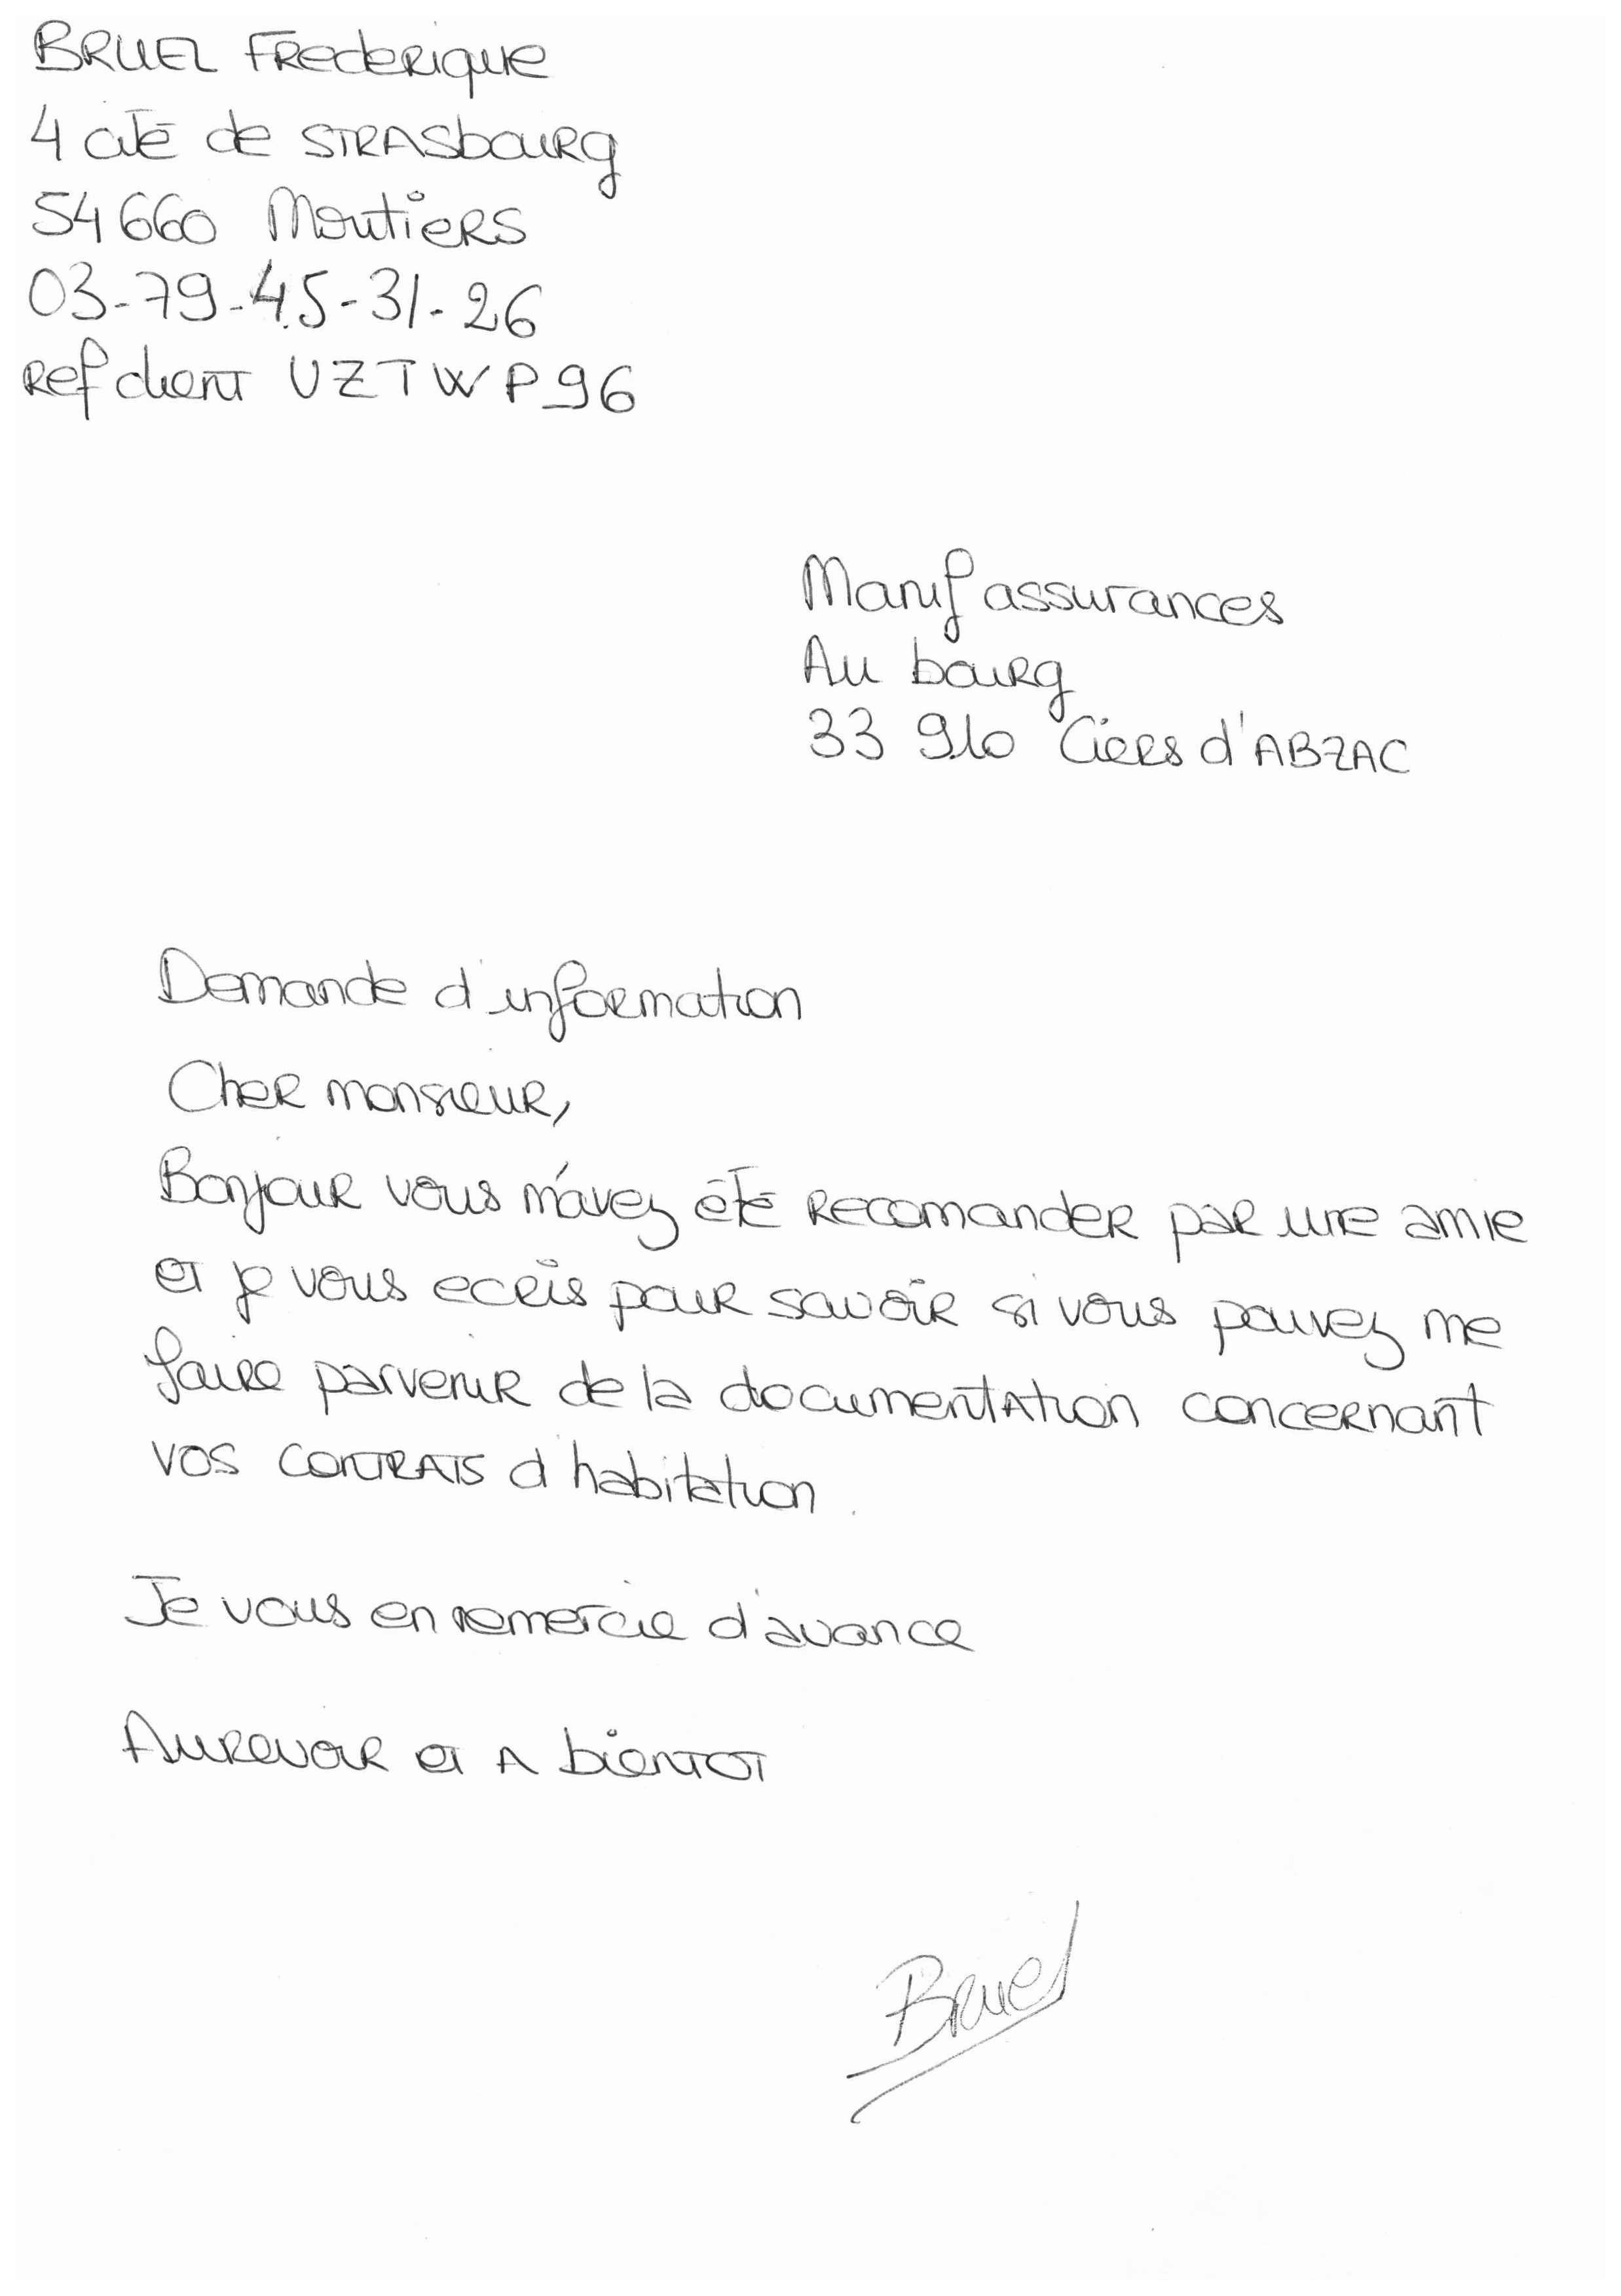 BRUEL FREDERIQUE
4 cité de STRASbourg
54660 Moutiers
03-79-45-31-26
Ref client UZTWP96
Manif assurances
Au bourg
33 910 Ciers d'ABZAC
Demande d'information
Cher monsieur,
Bonjour vous m'avez été recomander par une amie
et je vous ecris pour savoir si vous pouvez me
faire parvenir de la documentation concernant
vos contrats d'habitation.
Je vous en remercie d'avance
Aurevoir et A bientot
Bruel